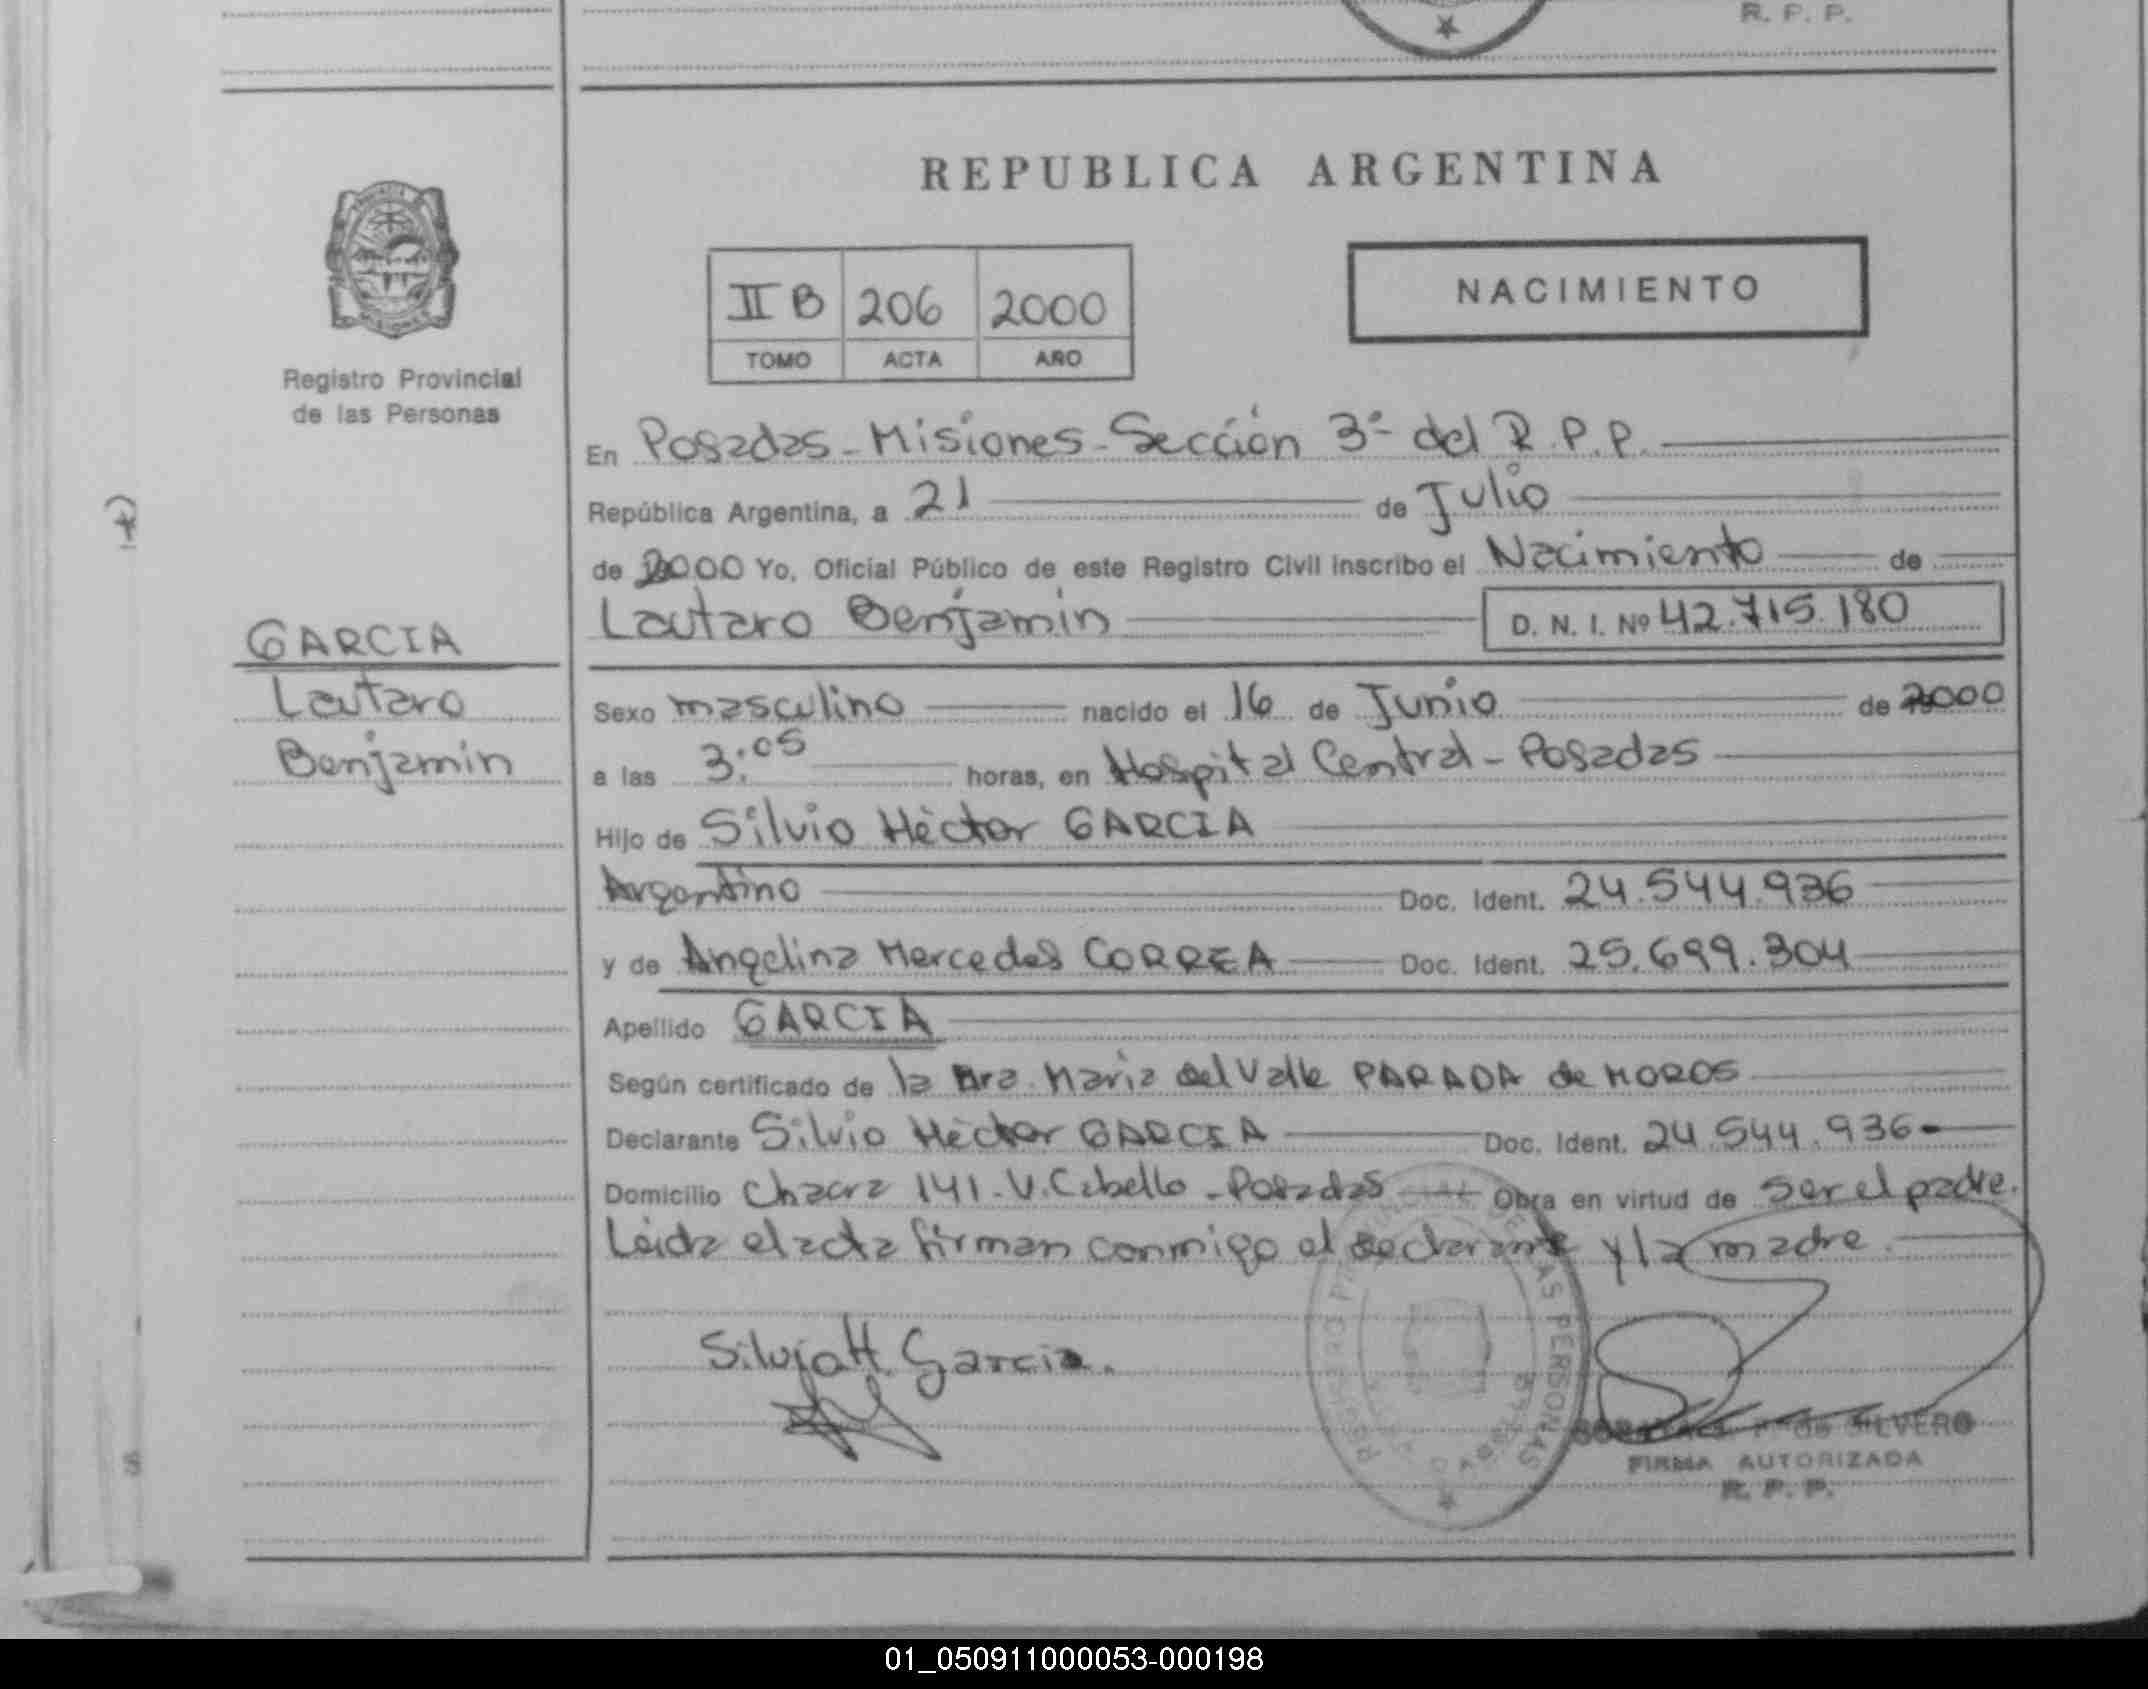 R. P. P.
REPUBLICA ARGENTINA
II B 206 2000
TOMO ACTA AÑO
NACIMIENTO
Registro Provincial
de las Personas
En Posadas - Misiones - Sección 3ª del R.P.P.
República Argentina, a 21 de Julio
de 2000 Yo, Oficial Público de este Registro Civil inscribo el Nacimiento de
Lautaro Benjamín D. N. I. Nº 42.715.180
GARCIA
Lautaro
Benjamín
Sexo masculino nacido el 16 de Junio de 2000
a las 3:05 horas, en Hospital Central - Posadas
Hijo de Silvio Héctor GARCIA
Argentino Doc. Ident. 24.544.936
y de Angelina Mercedes CORREA Doc. Ident. 25.699.304
Apellido GARCIA
Según certificado de la Dra. Maria del Valle PARADA de MOROS
Declarante Silvio Héctor GARCIA Doc. Ident. 24.544.936-
Domicilio Chacra 141. V. Cabello - Posadas Obra en virtud de Ser el padre.
Leida el acta firman conmigo el declarante y la madre.
Silvio H. Garcia.
REGISTRO PROVINCIAL DE LAS PERSONAS
de SILVERO
FIRMA AUTORIZADA
R. P. P.
01_050911000053-000198